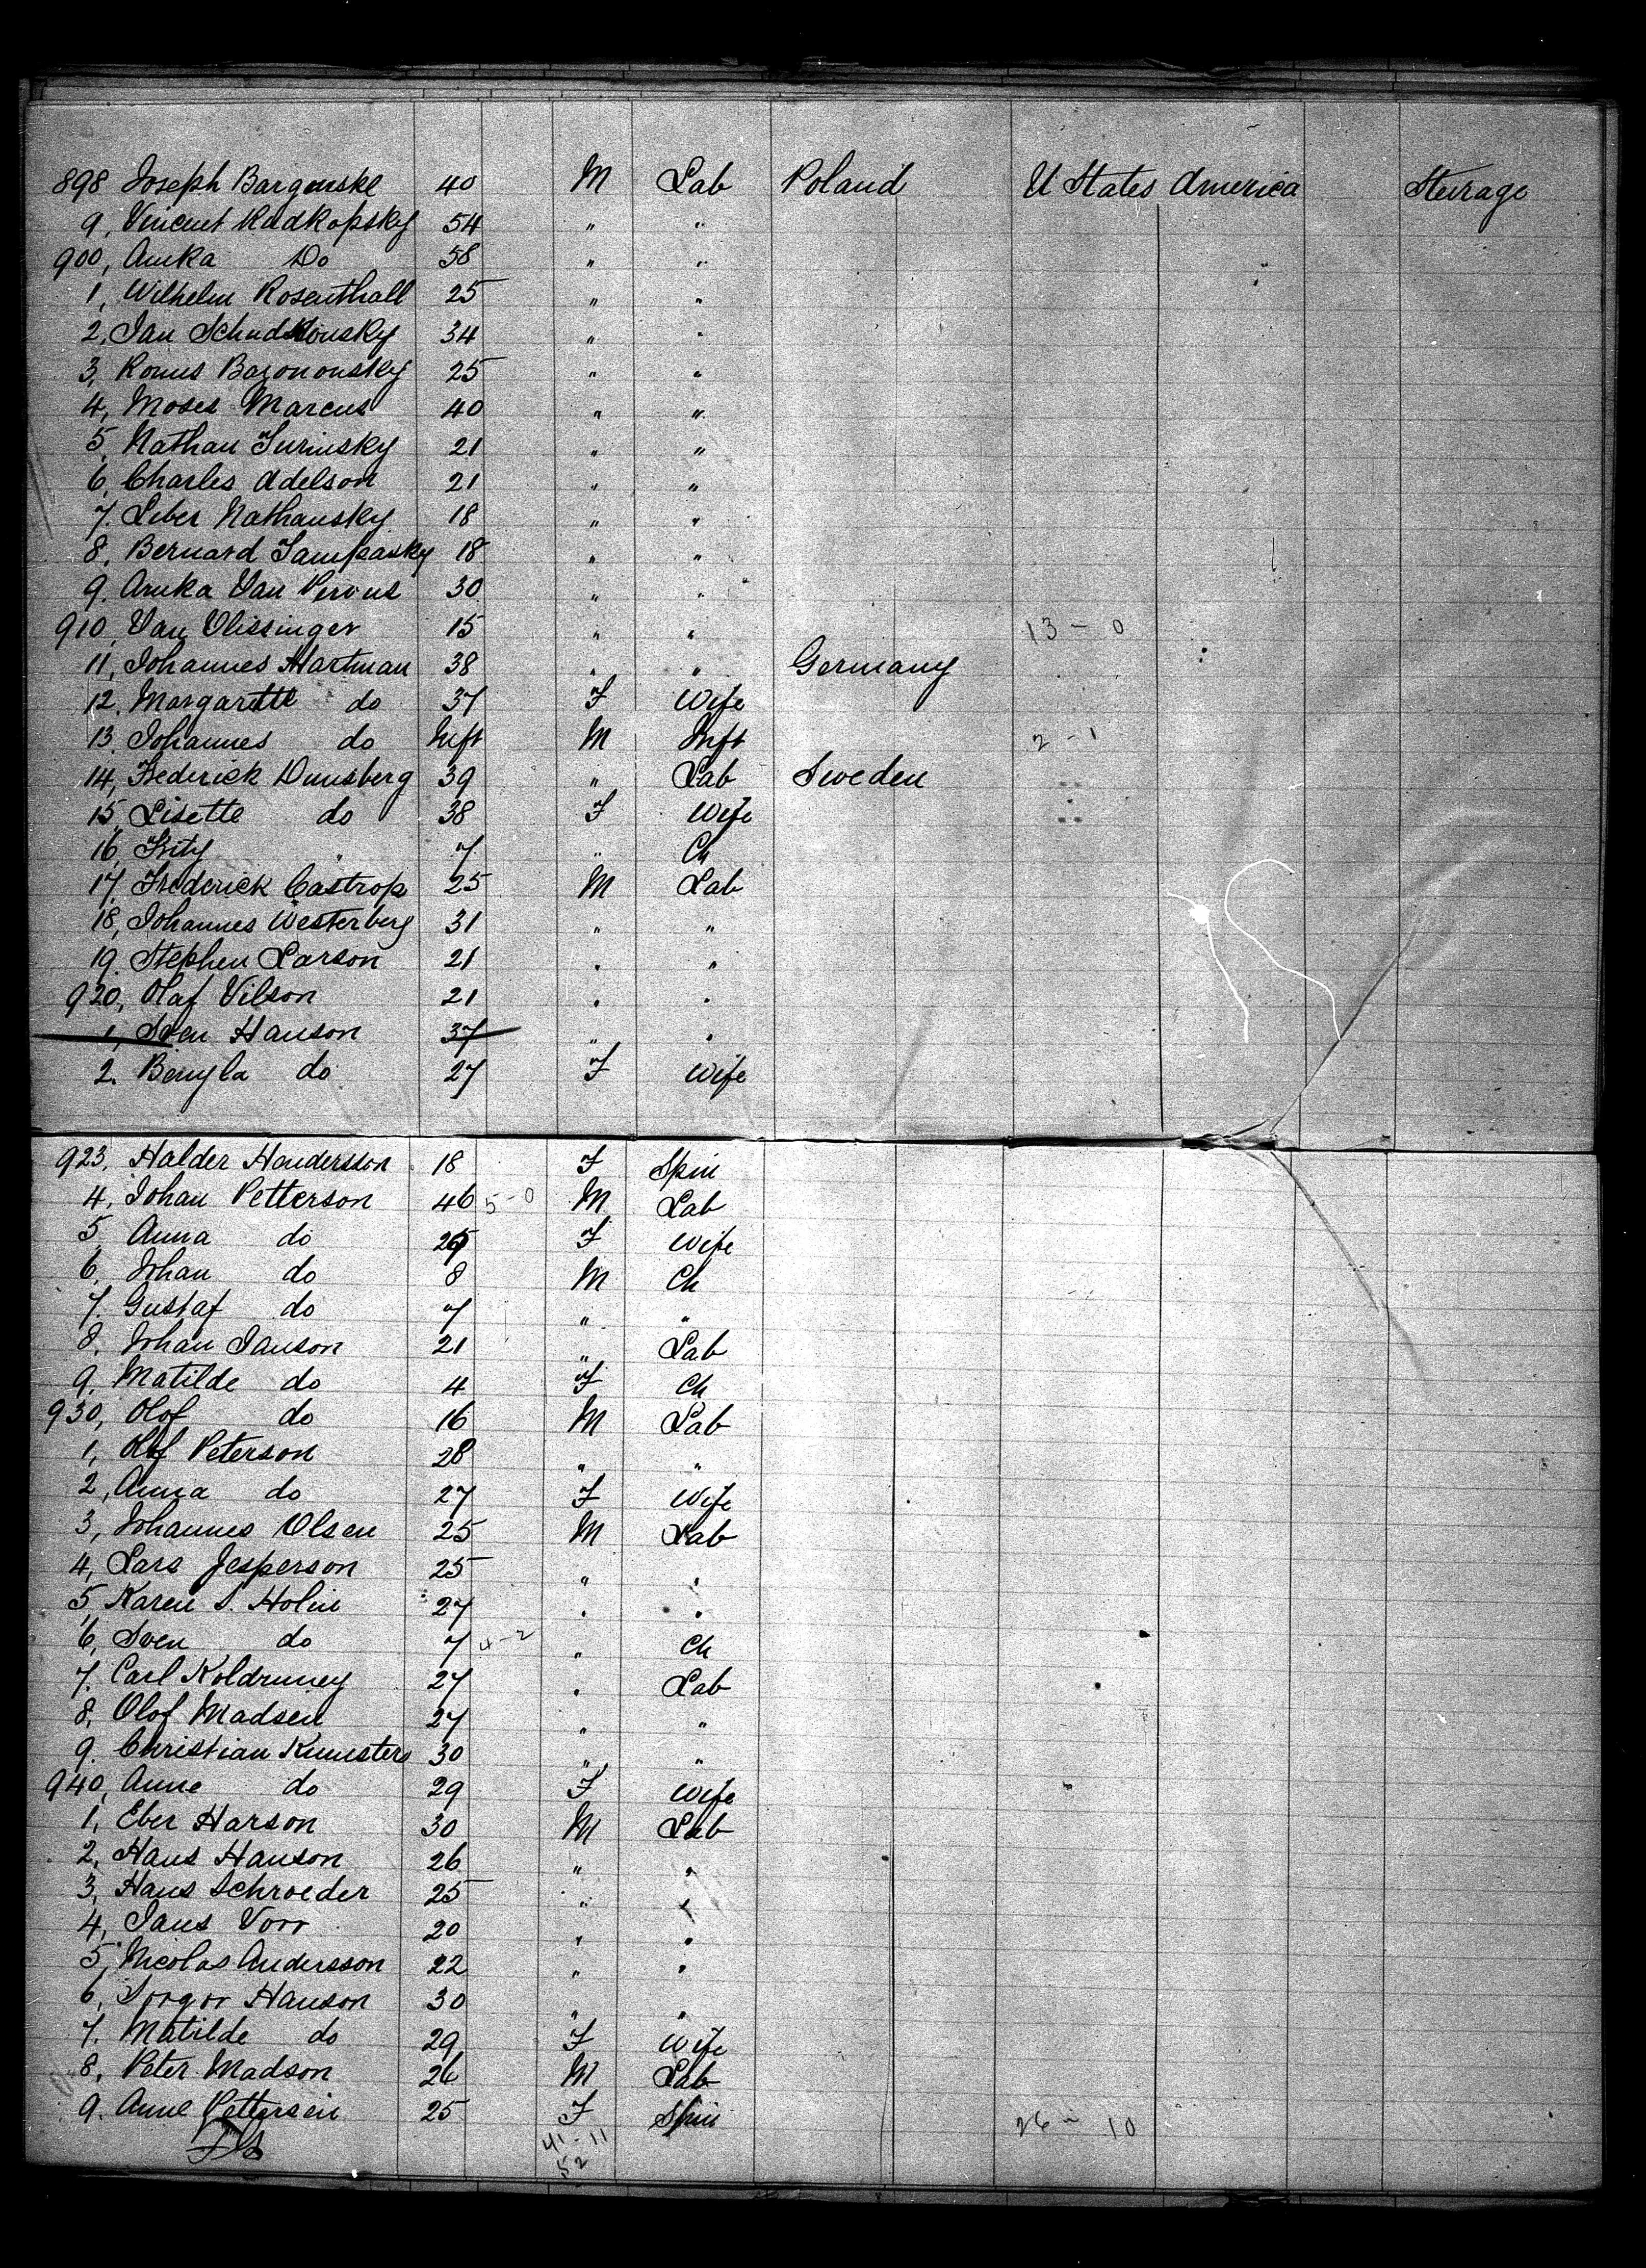 898 Joseph Bargenske 40 M Lab Poland U States America Steerage
9, Vincent Radkopsky 54 " "
900, Anka Do 58 " "
1, Wilhelm Rosenthall 25 " "
2, Jan 34 " "
3, Romus Bazononsky 25 " "
4, Moses Marcus 40 " "
5, Nathan Jurinsky 21 " "
6, Charles Adelson 21 " "
7. Leber Nathansky 18 " "
8. Bernard 18 " "
9. Anka Van 30 " "
910, Van Vlissinger 15 " " 13 - 0
11, Johannes Hartman 38 " " Germany
12, Margarette do 37 F Wife
13. Johannes do Inft M Inft 2 - 1
14, Frederick Dunsberg 39 " Lab Sweden
15, Lisette do 38 F Wife
16, Fritz " 7 " Ch
17, Frederick Castrop 25 M Lab
18, Johannes Westerberg 31 " "
19. Stephen Larson 21 " "
920, Olaf Vilson 21 " "
1, Sven Hanson 37 " "
2. Bengla do 27 F Wife
923, Halder Hendersson 18 F Spin
4, Johan Petterson 46 5 - 0 M Lab
5, Anna do F Wife
6, Johan do 8 M Ch
7. Gustaf do 7 " "
8. Johan Janson 21 " Lab
9. Matilde do 4 F Ch
930, Olof do 16 M Lab
1, Olof Peterson 28 " "
2, Anna do 27 F Wife
3, Johannes Olsen 25 M Lab
4, Lars Jesperson 25 " "
5 Karen S. Holm 27 " "
6, Sven do 7 4 - 2 " Ch
7. Carl 27 " Lab
8, Olof Madsen 27 " "
9. Christian 30 " "
940, Anne do 29 F Wife
1, Eber Harson 30 M Lab
2, Hans Hanson 26 " "
3, Hans Schroeder 25 " "
4, Jans Vorr 20 " "
5, Nicolas Andersson 22 " "
6, Hanson 30 " "
7. Matilde do 29 F Wife
8, Peter Madson 26 M Lab
9. Anne Pettersen 25 F Spin 26 - 10
41 - 11
52